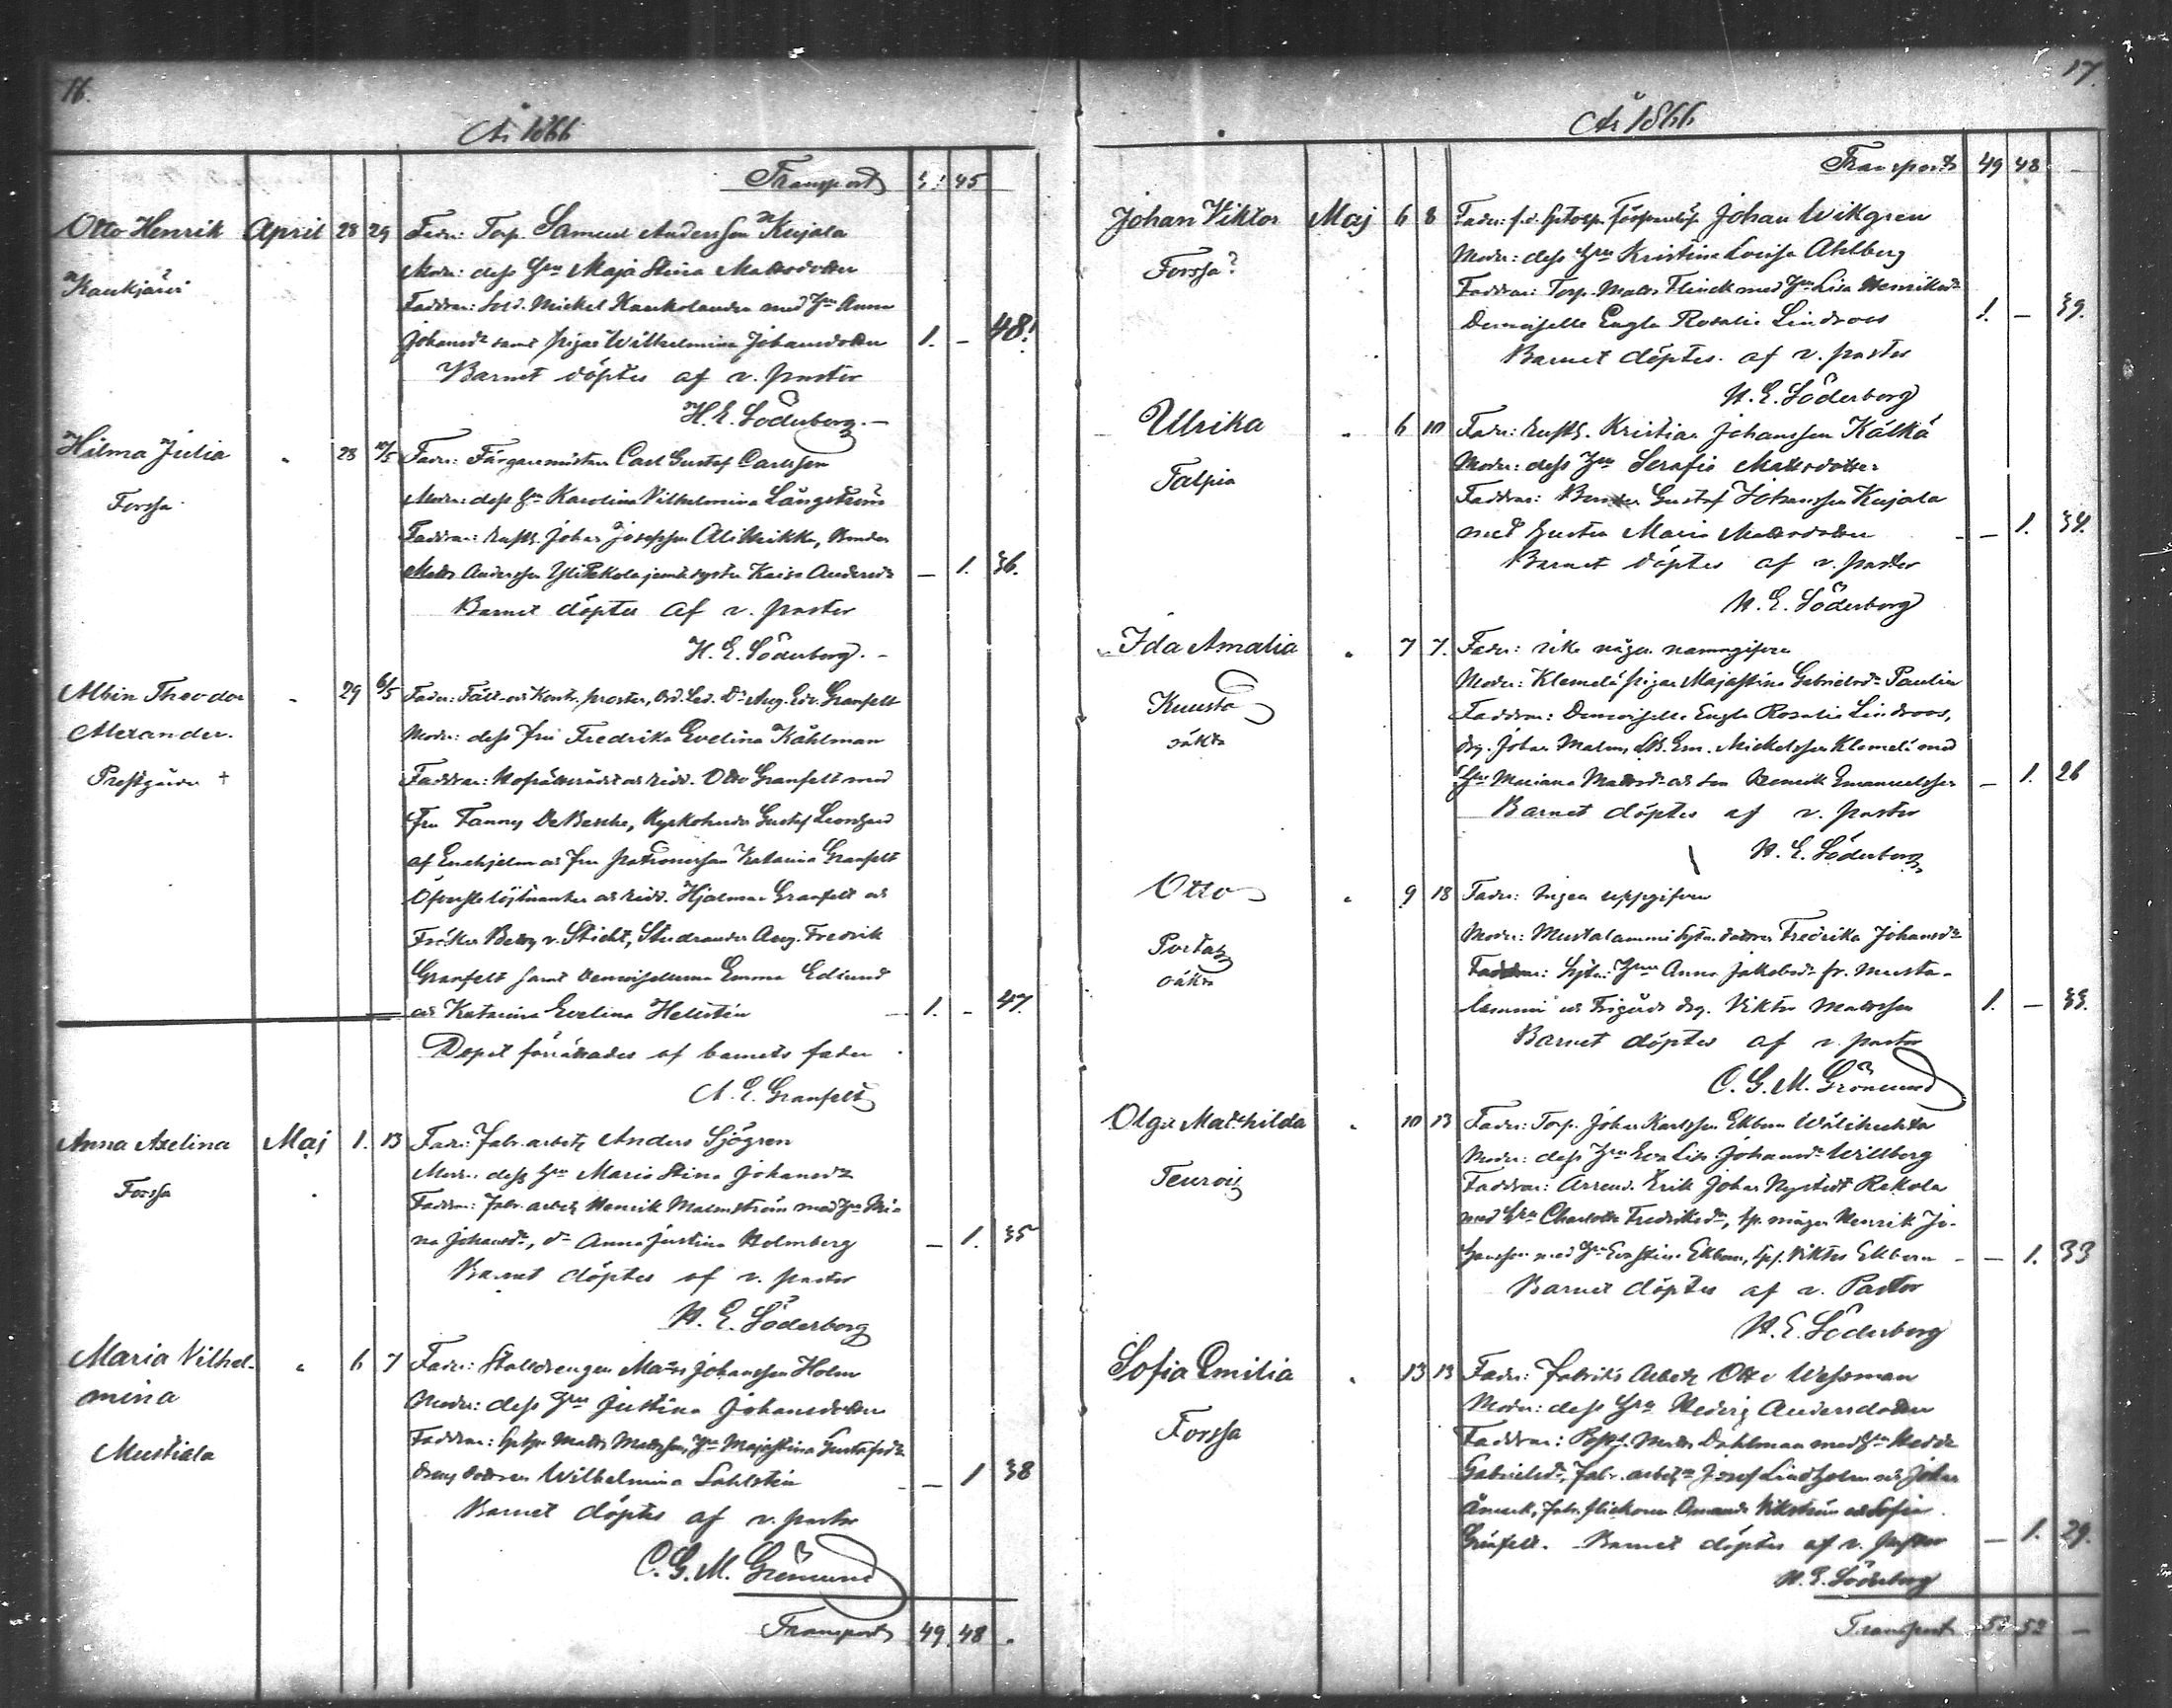 16.
År 1866
Transport 45
Otto Henrik April 28 29 Fader: Torp. Samuel Andersson Kujala
Kaukjärvi
Moder: dess Hu Maja Stina Mattsdotter
Faddrar: Sold. Mickel Kaukolander med Hu Anna
Johansdr samt pigan Wilhelmina Johansdotter 1. – 48!
Barnet döptes af v. pastor
H. E. Söderberg. –
Hilma Julia " 28 10/5 Fader: Färgaremästar Carl Gustaf Carlsson
Moder: dess Hu Karolina Vilhelmina Långström
Forssa
Faddrar: Johan Josefsson Alitikka, Bonden
Matts Andersson Kaisa Andersdr – 1. 36.
Barnet döptes af v. pastor
H. E. Söderberg. –
Albin Theodor " 29 6/5 Fader: Fält- och Kontr. proster, Dr Aug. Edv. Granfelt
Alexander.
Moder: dess fru Fredrika Evelina Kåhlman
Prestgården †
Faddrar: Hofrättsrådet och ridd. Otto Granfelt med
Fru Fanny De Besche, Kyrkoherden Gustaf Leonhard
af Enehjelm och fru Katarina Granfelt
Öfverstelöjtnanten och ridd. Hjalmar Granfelt och
Fröken Betty v. Sticht, Studranden Aug. Fredrik
Granfelt samt Demoisellerna Emma Edlund
och Katarina Evelina Hellstén 1. – 47.
Dopet förrättades af barnets fader
A. E. Granfelt
Anna Axelina Maj 1. 13 Fader: Fabr. arbetz Anders Sjögren
Moder: dess Hu Maria Stina Johansdr
Forssa
Faddrar: Fabr. arbetz Henrik Malmström med Hu Mi-
na Johansdr, dr Anna Justina Holmberg – 1. 35
Barnet döptes af v. pastor
H. E. Söderberg
Maria Vilhel- " 6 7 Fader: Stalldrengen Matts Johansson Holm
mina
Moder: dess Hu Justina Johansdotter
Mustiala
Faddrar: Matts Mattsson, Hu Majastina Gustafsdr
Wilhelmina Sahlstén – 1 38
Barnet döptes af v. pastor
C. G. M. Grönlund
Transport 49 48 .
17.
År 1866
Transport 49 48 –
Johan Viktor Maj 6 8 Fader: f.d. Johan Wikgren
Moder: dess Hu Kristina Lovisa Ahlberg
Forssa?
Faddrar: Torp. Matts Flinck med Hu Lisa Henriksdr
Demoiselle Engla Rosalie Lindroos 1. – 39.
Barnet döptes af v. pastor
H. E. Söderberg
Ulrika " 6 10 Fader: Kristian Johansson Kälkä
Moder: dess Hu Serafia Mattsdotter
Talpia
Faddrar: Bonden Gustaf Johansson Kujala
med Hustru Maria Mattsdotter – 1. 34.
Barnet döptes af v. pastor
H. E. Söderberg
Ida Amalia " 7 7. Fader: icke någon namngifven
Moder: Klemelä pigan Majastina Gabrielsdr Paulin
Kuusto
Faddrar: Demoiselle Engla Rosalie Lindroos,
oäkta
drg. Johan Malm, Em. Mickelsson Klemelä med
Hu Mariana Mattsdr och son Benedik Emanuelsson – 1. 26
Barnet döptes af v. pastor
H. E. Söderberg
Otto " 9 18 Fader: Ingen uppgifven
Moder: Mustalammi dottren Fredrika Johansdr
Portas
oäkta
Faddrar: Hu Anna Jakobsdr fr. Musta-
lammi och drg. Viktor Mattsson 1. – 33.
Barnet döptes af v. pastor
C. G. M. Grönlund
Olga Mathilda " 10 13 Fader: Torp. Johan Karlsson Ekbom Välihuhta
Moder: dess Hu Eva Lisa Johansdr Willberg
Teuro
Faddrar: Arrend. Erik Johan Nystedt Rekola
med Hu Charlotta Fredriksdr, Henrik Jo-
hansson med Hu Eva Stina Ekbom, Viktor Ekbom – 1. 33
Barnet döptes af v. Pastor
H. E. Söderberg
Sofia Emilia " 13 13 Fader: Fabriks Arbetz Otto Wessman
Moder: dess Hu Hedvig Andersdotter
Forssa
Faddrar: Matts Dahlman med Hu Hedda
Gabrielsdr, Fabr. arbetrne Josef Lindholm och Johan
Åmark, Fabr. flickorna Amanda Vikström och Sofia
Grönfelt. Barnet döptes af v. pastor – 1. 29.
H. E. Söderberg
Transport 52 –